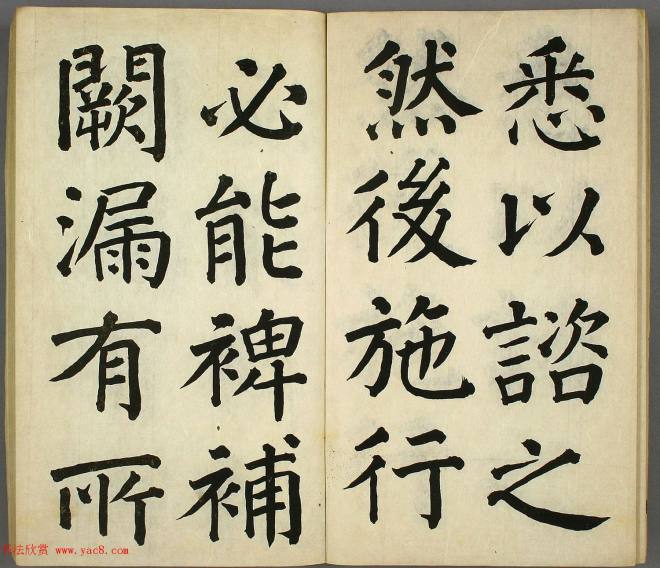 悉以諮之
然後施行
必能裨補
闕漏有所
书法欣赏 www.yac8.com